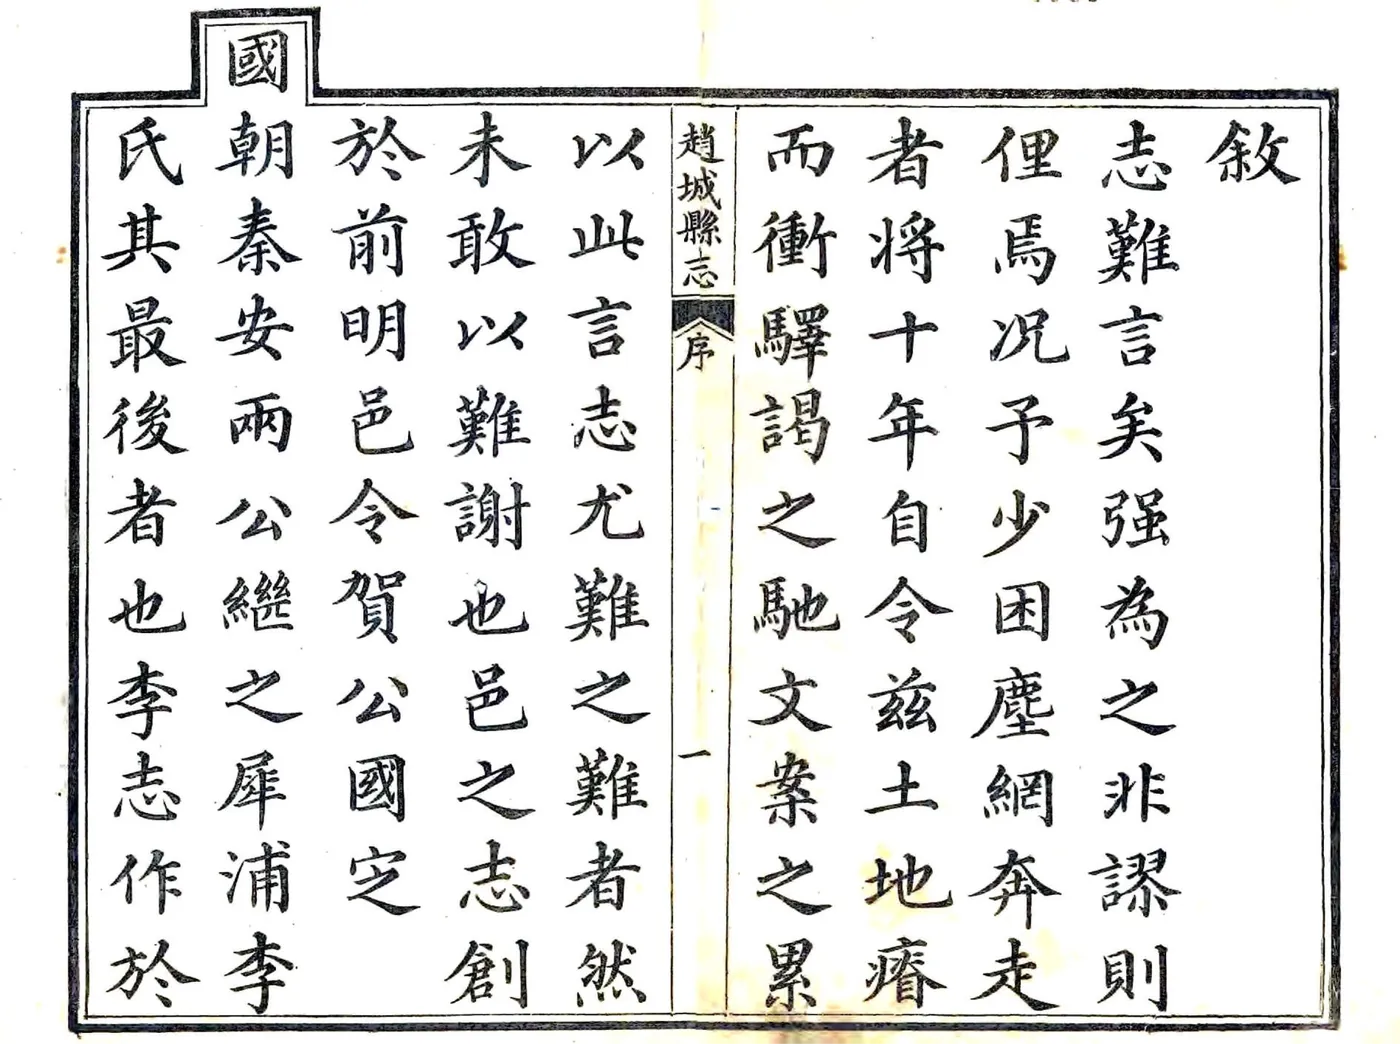 敘
志難言矣强為之非謬則
俚焉况予少困塵網奔走
者将十年自令兹土地瘠
而衝驛謁之馳文案之累
趙城縣志
序
一
以此言志尤難之難者然
未敢以難謝也邑之志創
於前明邑令賀公國定
國朝秦安兩公繼之犀浦李
氏其最後者也李志作於